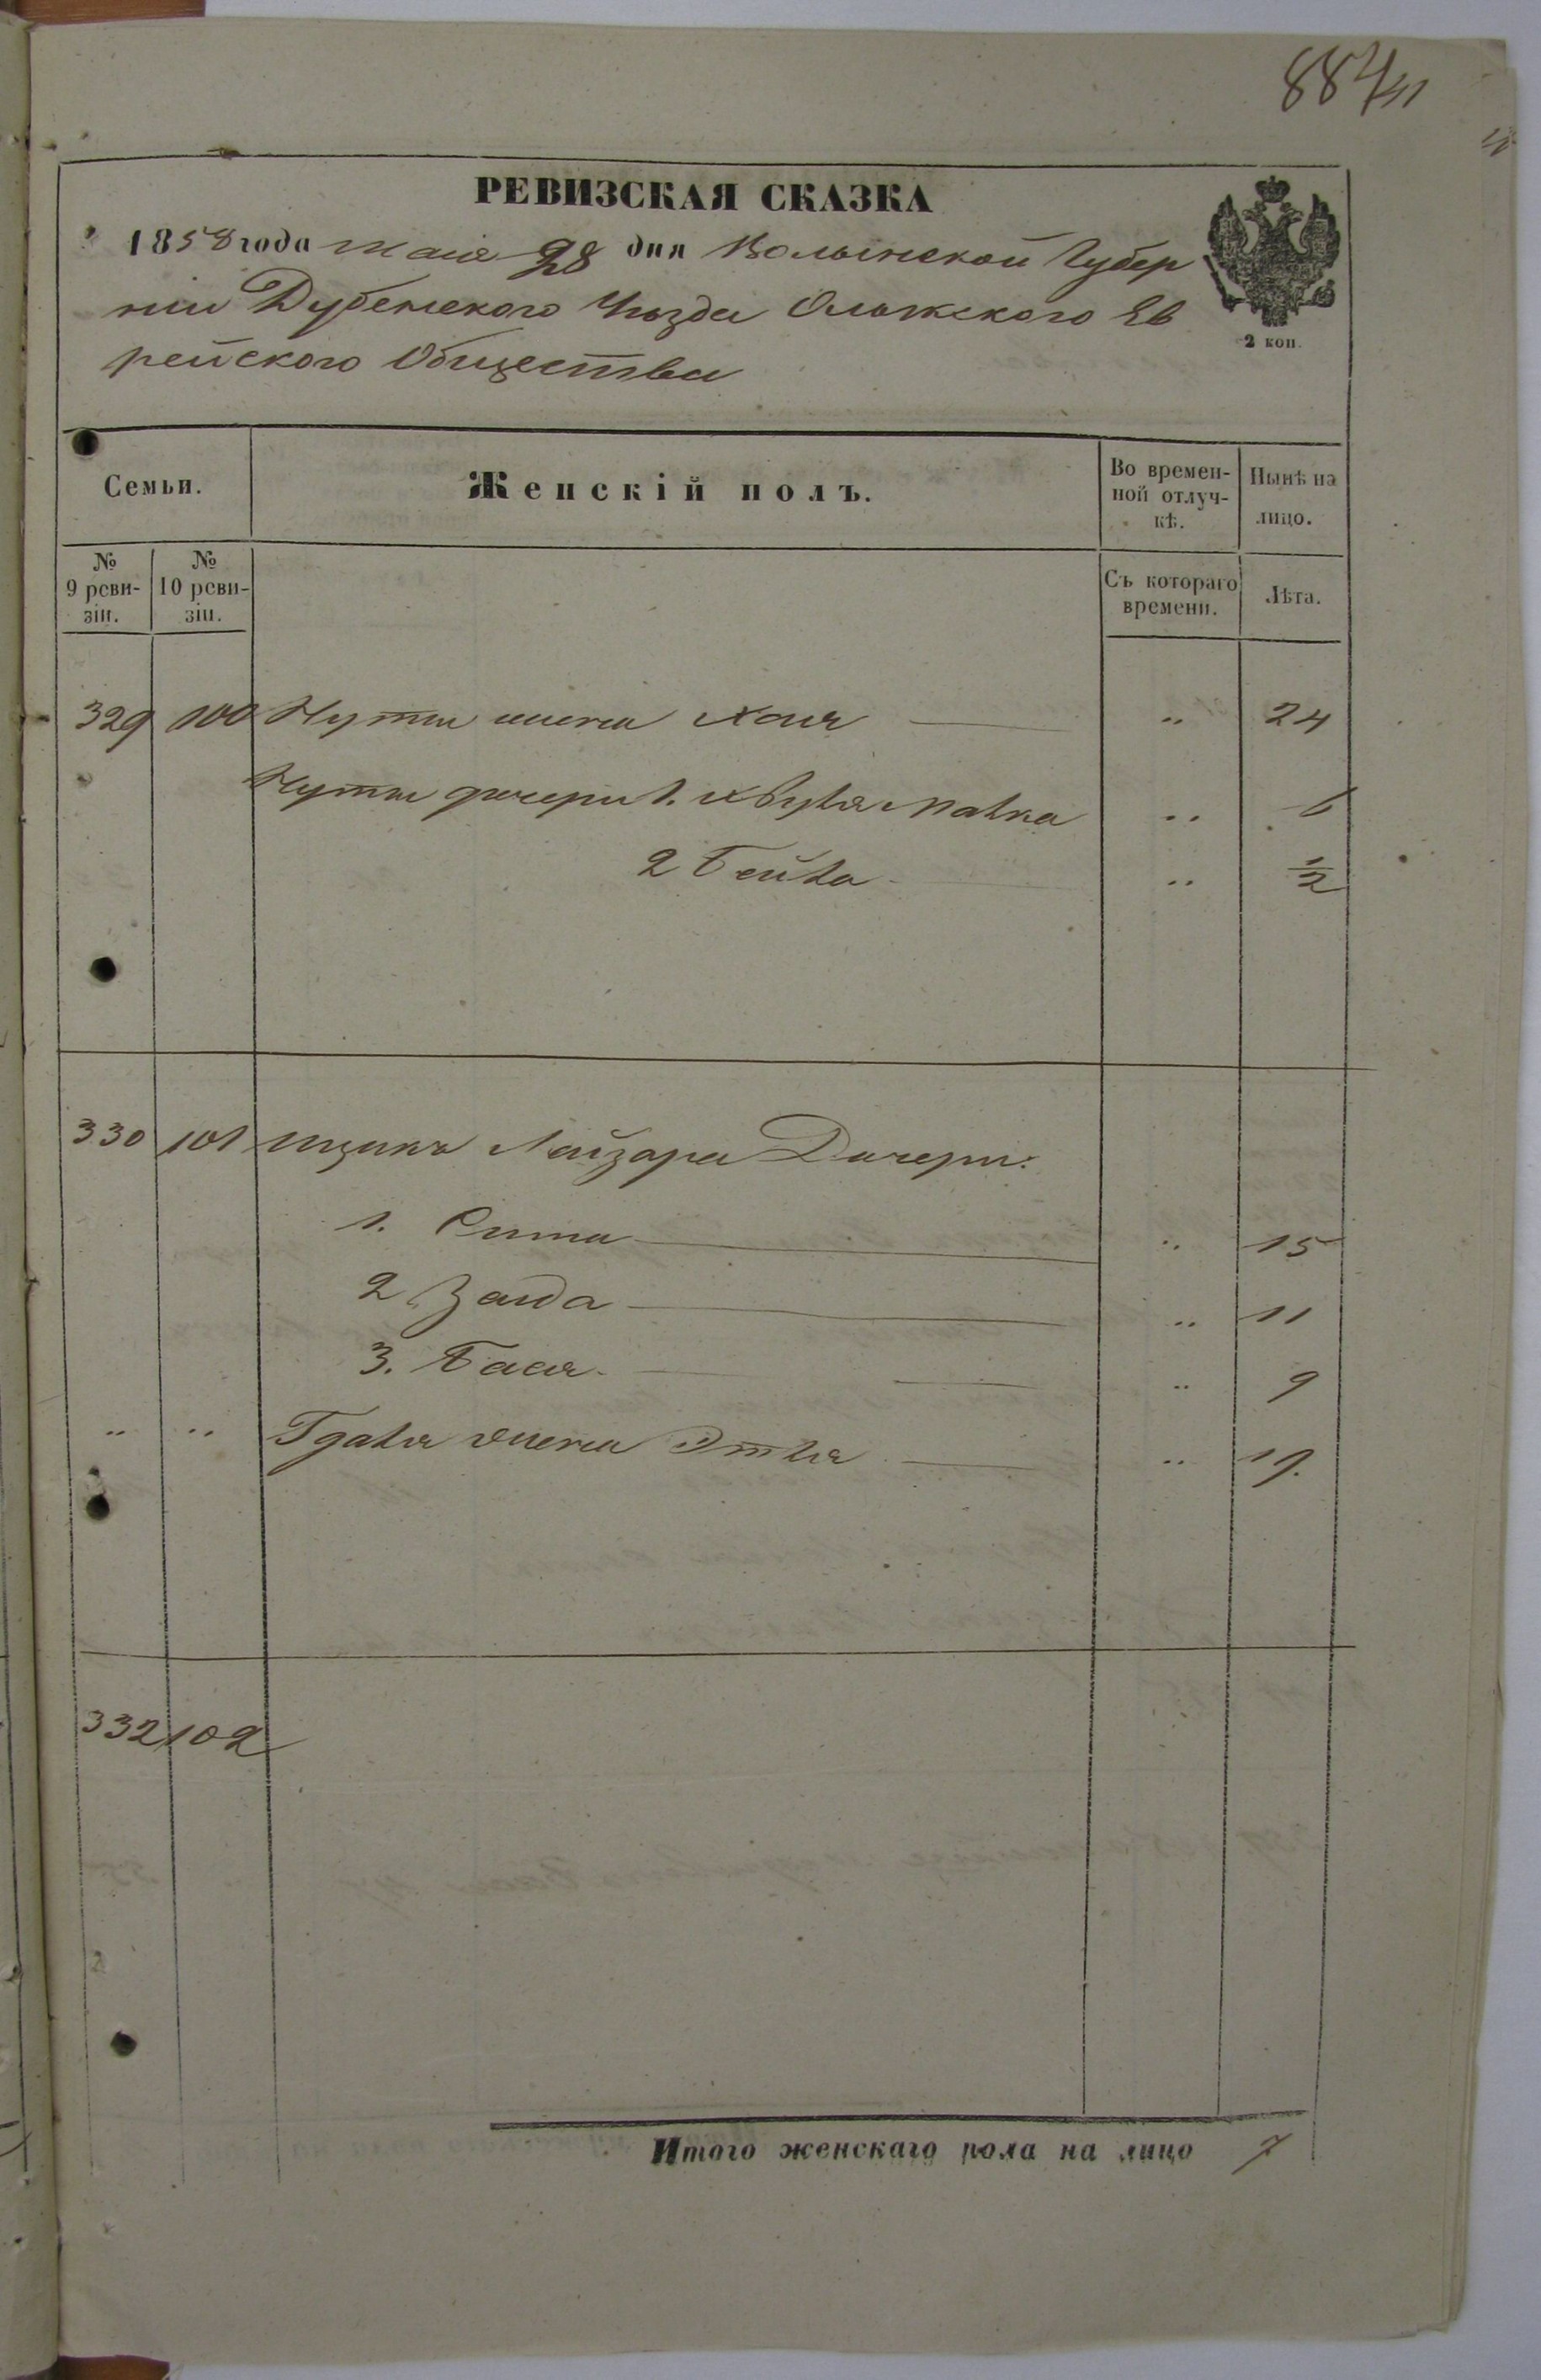 887/41
РЕВИЗСКАЯ СКАЗКА
1858 года маія 28 дня Волынской Губер
ніи Дубенского Уѣзда Олыкского Ев
рейского Общества
2 коп.
Семьи.
Женскій полъ.
Во времен-
ной отлуч-
кѣ.
Нынѣ на
лицо.
№
9 реви-
зіи.
№
10 реви-
зіи.
Съ котораго
времени.
Лѣта.
329 100 Нуты жена Хая „ 24
Нуты дочери 1. Малка „ 6
2 Бейла „ 1/2
330 101 Ицика Лейзора Дочери:
1. Сима „ 15
2 Зайда „ 11
3. Бася „ 9
„ „ Гдаля жена Этля „ 19.
332 102
Итого женскаго пола на лицо 7